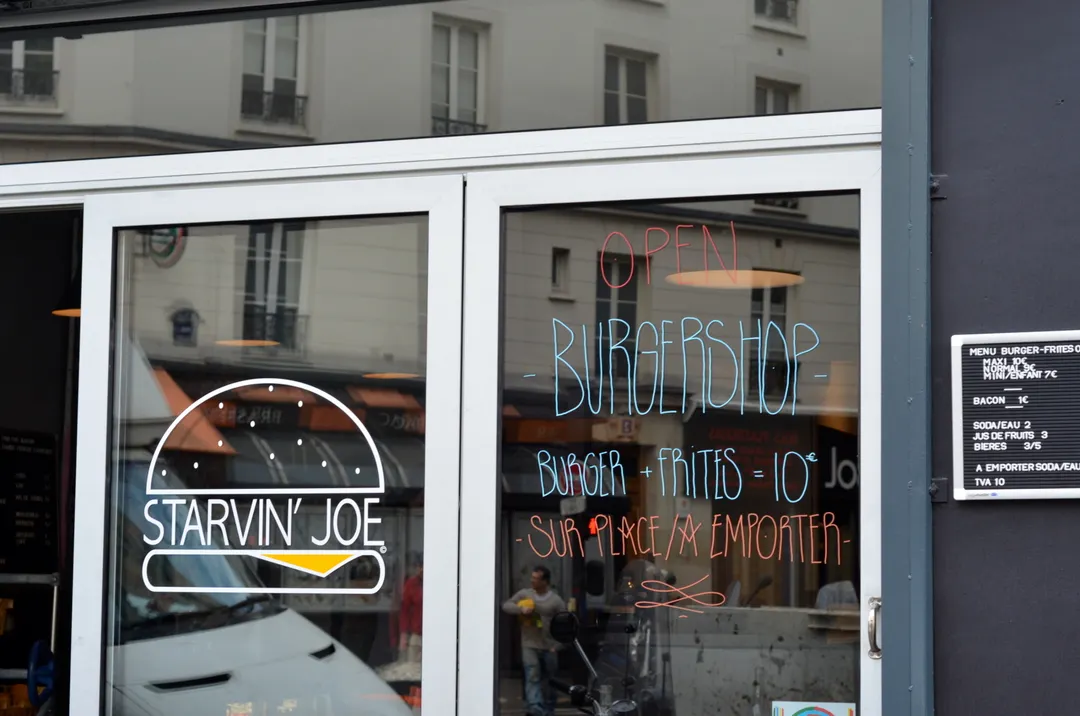 STARVIN' JOE
©
OPEN
- BURGERSHOP -
BURGER + FRITES = 10€
- SUR PLACE/A EMPORTER -
Jo
MENU BURGER-FRITES
MAXI 10€
NORMAL 9€
MINI/ENFANT 7€
BACON 1€
SODA/EAU 2
JUS DE FRUITS 3
BIERES 3/5
A EMPORTER SODA/EAU
TVA 10